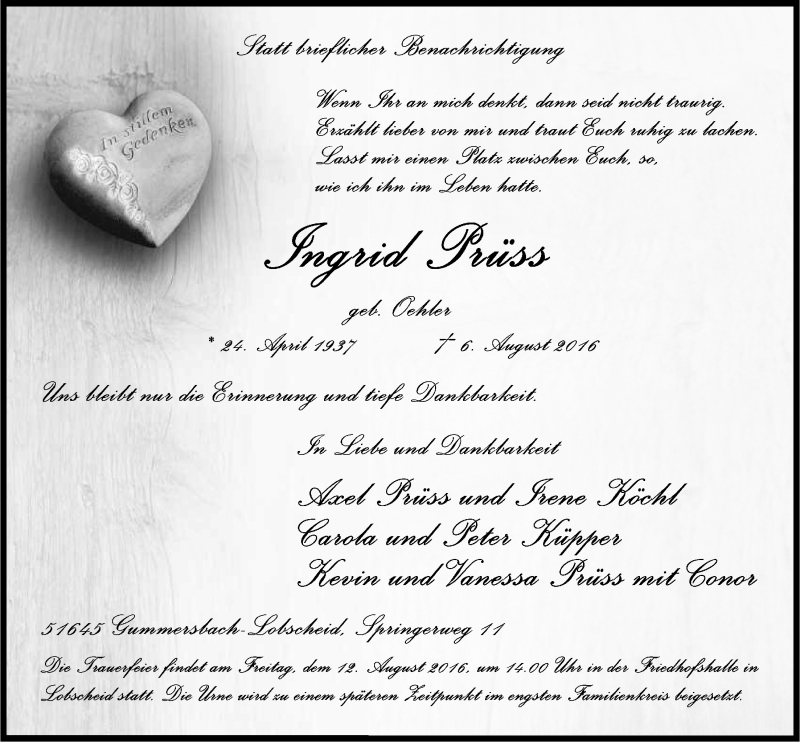 Statt brieflicher Benachrichtigung
In stillem
Gedenken
Wenn Ihr an mich denkt, dann seid nicht traurig.
Erzählt lieber von mir und traut Euch ruhig zu lachen.
Lasst mir einen Platz zwischen Euch, so,
wie ich ihn im Leben hatte.
Ingrid Prüss
geb. Oehler
* 24. April 1937 † 6. August 2016
Uns bleibt nur die Erinnerung und tiefe Dankbarkeit.
In Liebe und Dankbarkeit
Axel Prüss und Irene Köchl
Carola und Peter Küpper
Kevin und Vanessa Prüss mit Conor
51645 Gummersbach-Lobscheid, Springerweg 11
Die Trauerfeier findet am Freitag, dem 12. August 2016, um 14.00 Uhr in der Friedhofshalle in
Lobscheid statt. Die Urne wird zu einem späteren Zeitpunkt im engsten Familienkreis beigesetzt.